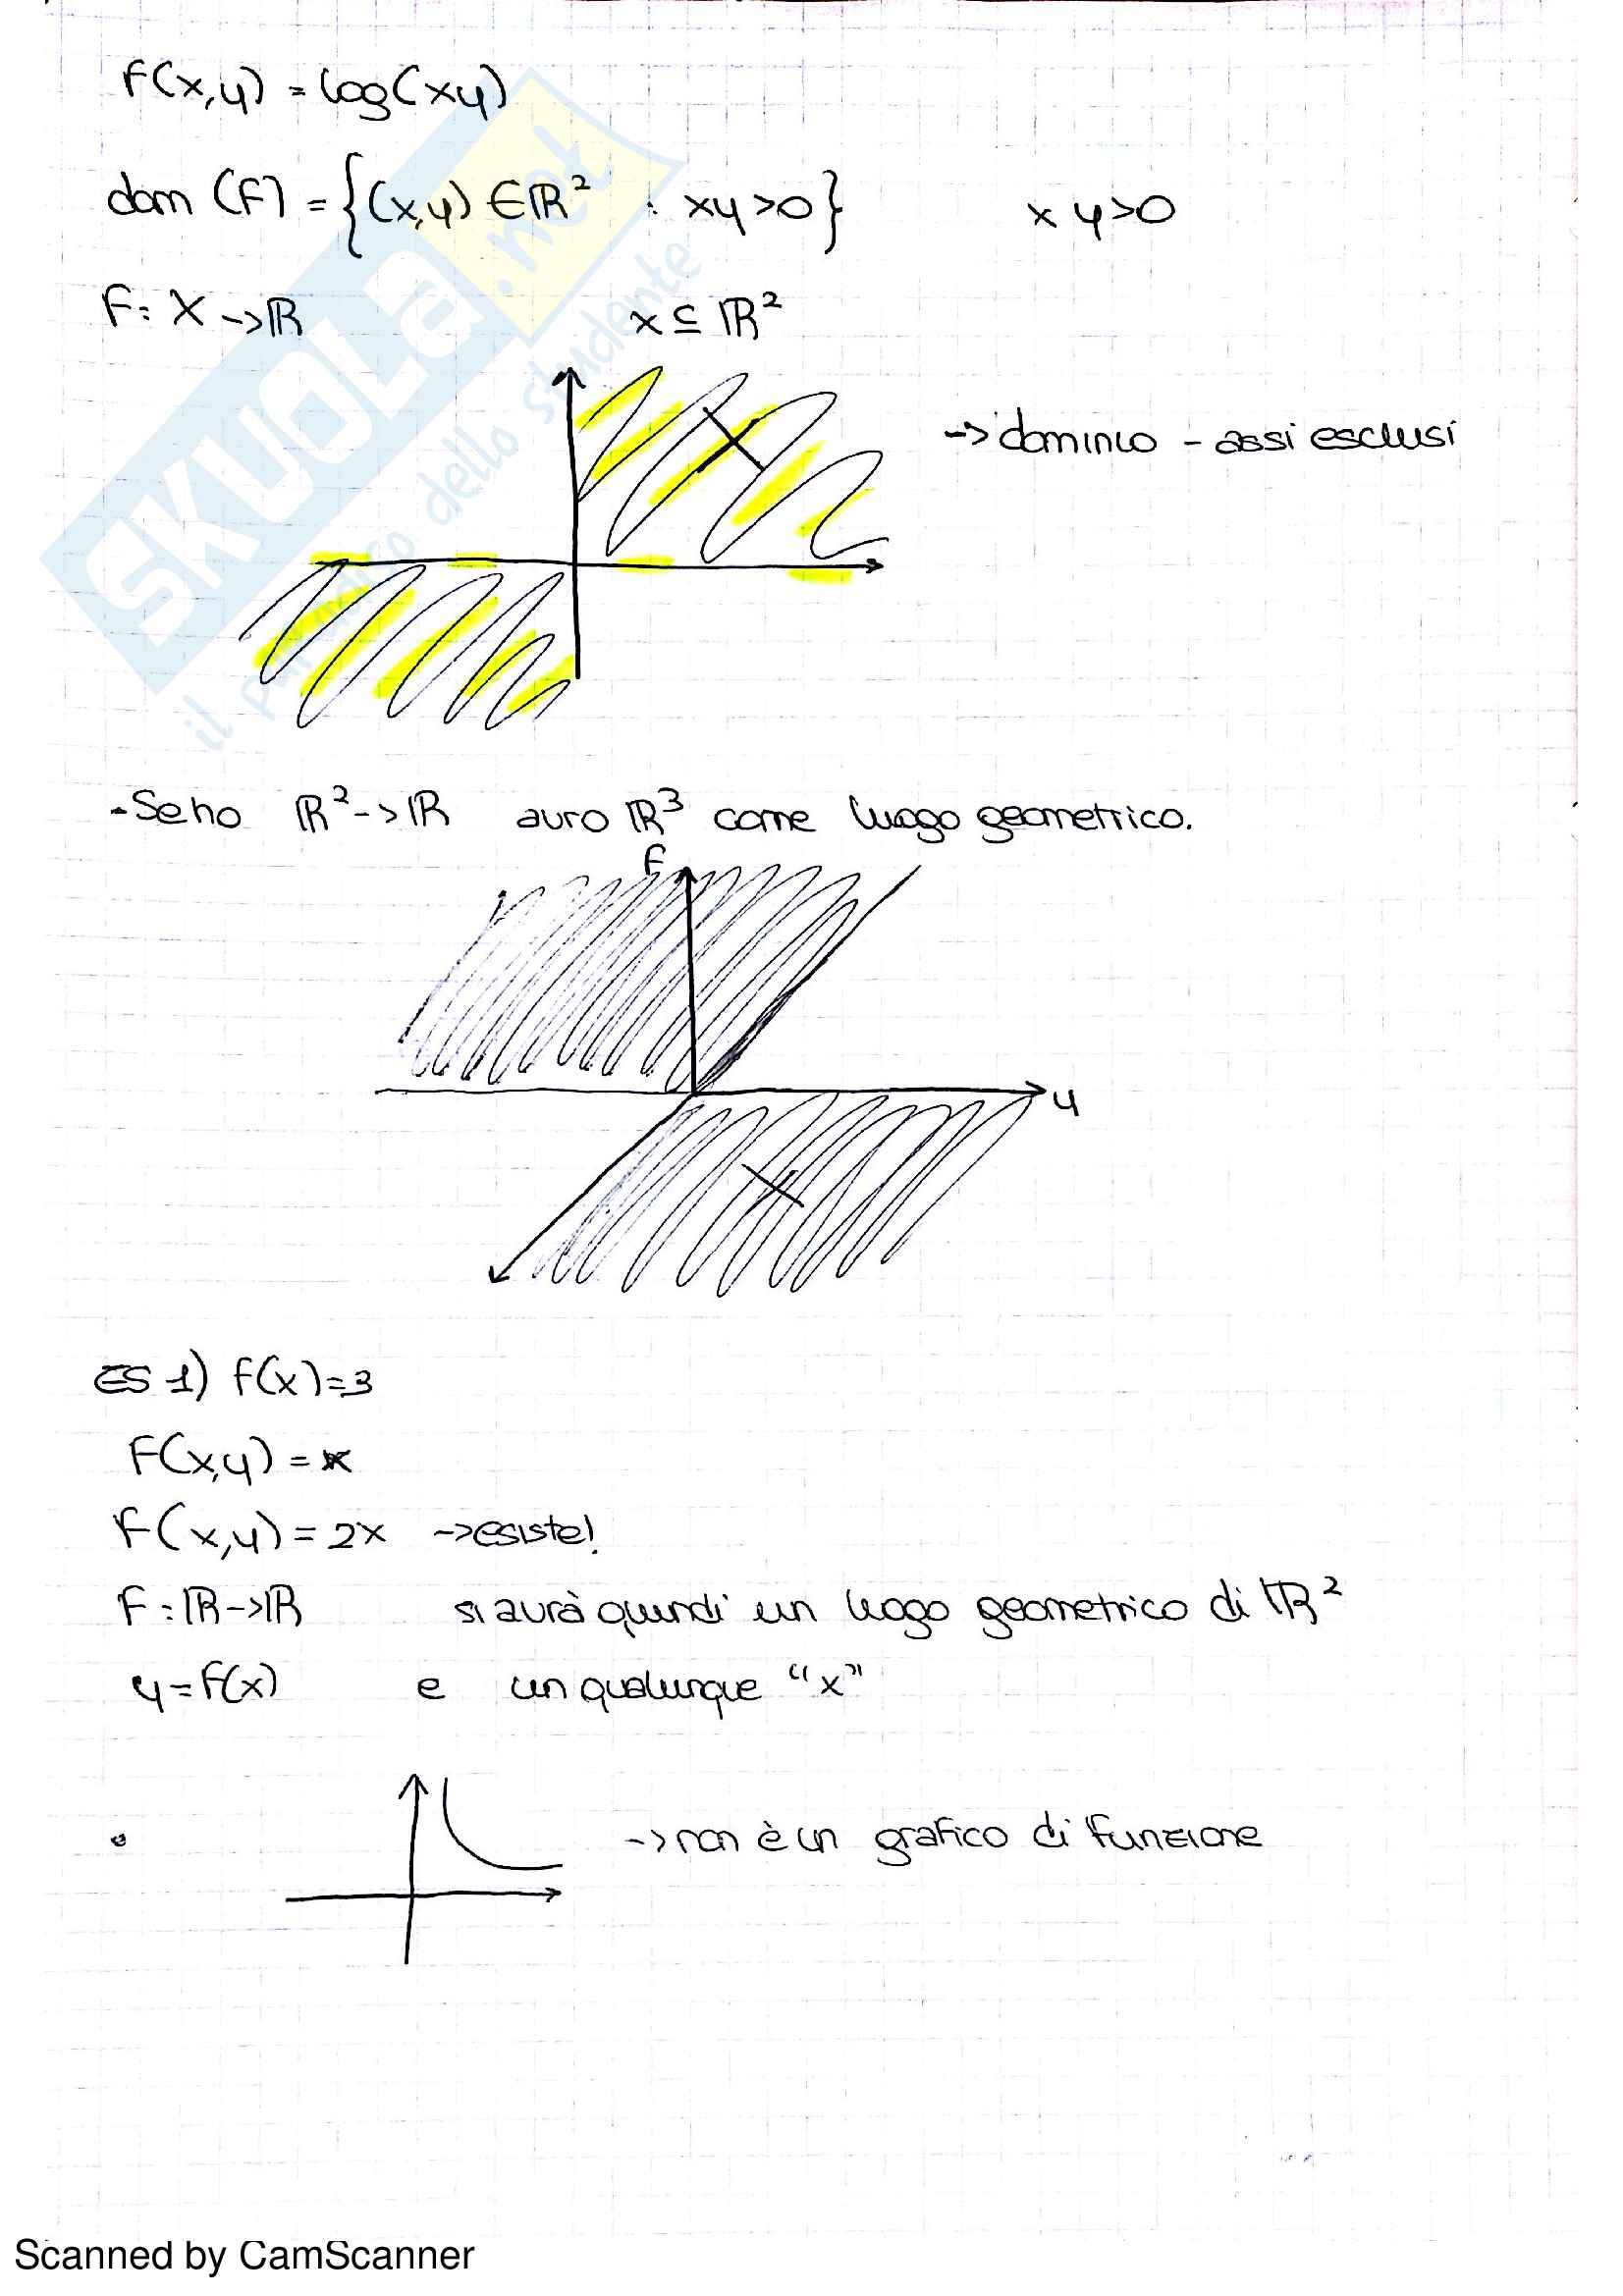 f(x,y) = log(xy)
dom (f) = {(x,y) ∈ ℝ² : xy>0} xy>0
f: X -> ℝ x ⊆ ℝ²
SKUOLA.net
il paradiso dello studente
-> dominio - assi esclusi
X
- Se ho ℝ² -> ℝ avrò ℝ³ come luogo geometrico.
f
y
X
ES 1) f(x)=3
f(x,y) = x
f(x,y) = 2x -> esiste!
f: ℝ -> ℝ si avrà quindi un luogo geometrico di ℝ²
y = f(x) e un qualunque “x”
-> non è un grafico di funzione
Scanned by CamScanner